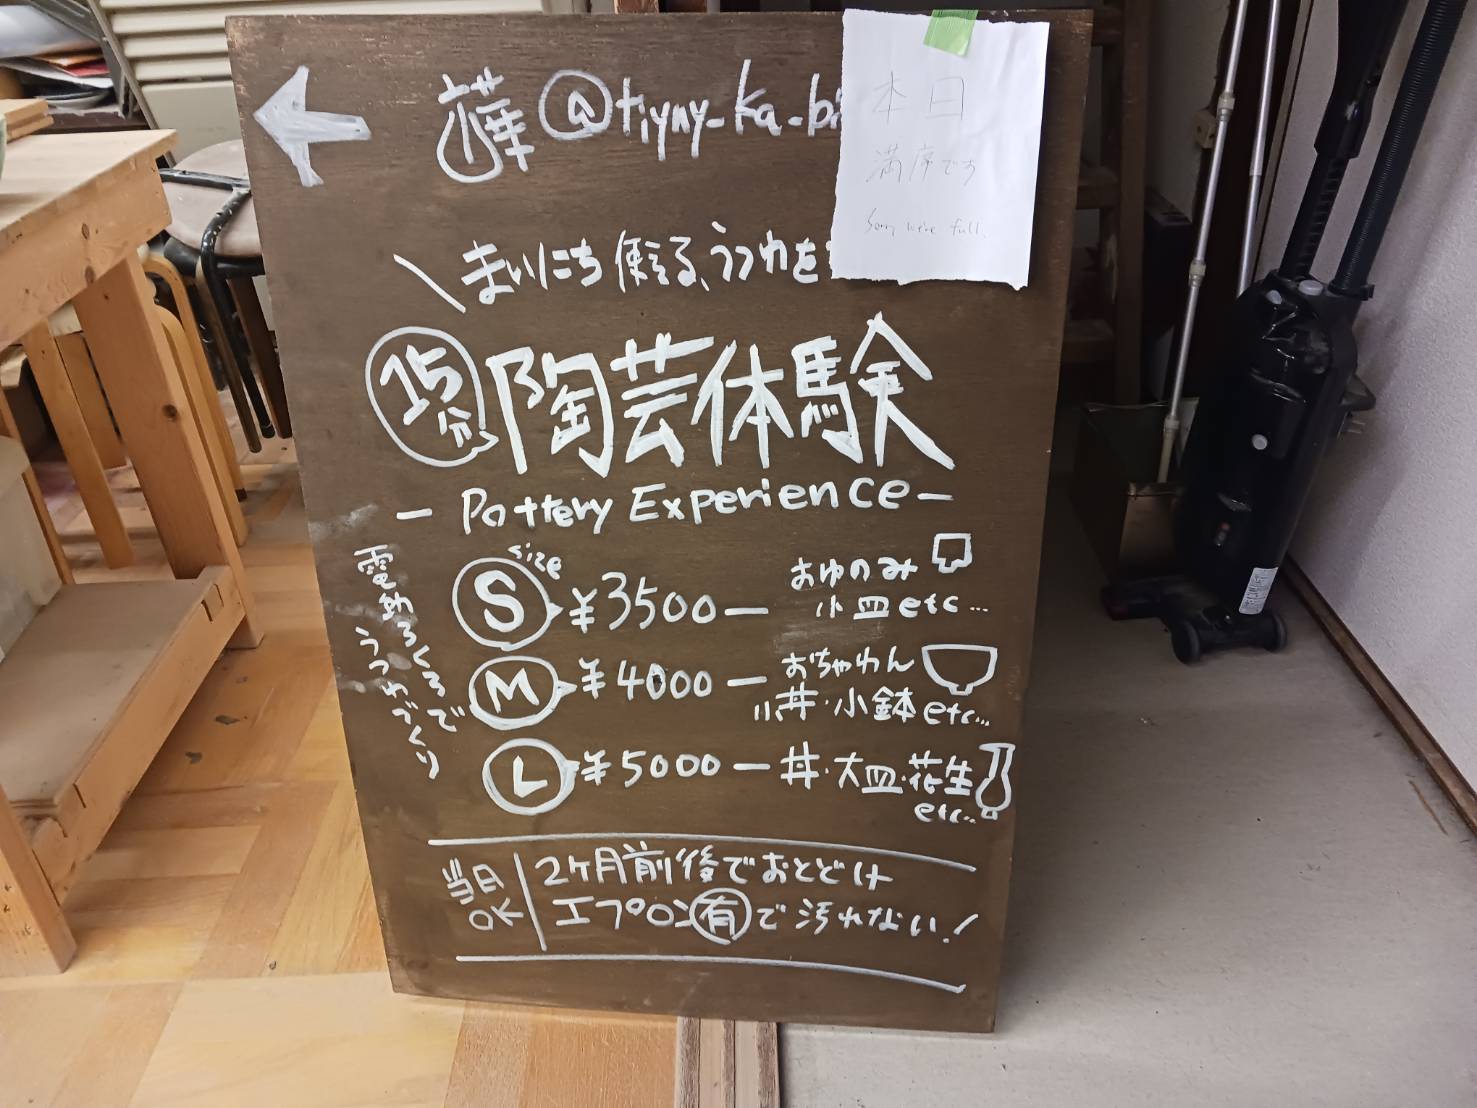 @tiyny_ka_bi
本日
満席です
Sorry we're full.
まいにち使える、うつわを
15分
陶芸体験
- Pottery Experience -
電動ろくろで
うつわづくり
S size ¥3500 - おゆのみ
小皿etc...
M ¥4000 - おちゃわん
小丼・小鉢etc...
L ¥5000 - 丼・大皿・花生
etc...
当日OK
2ヶ月前後でおとどけ
エプロン有で汚れない!